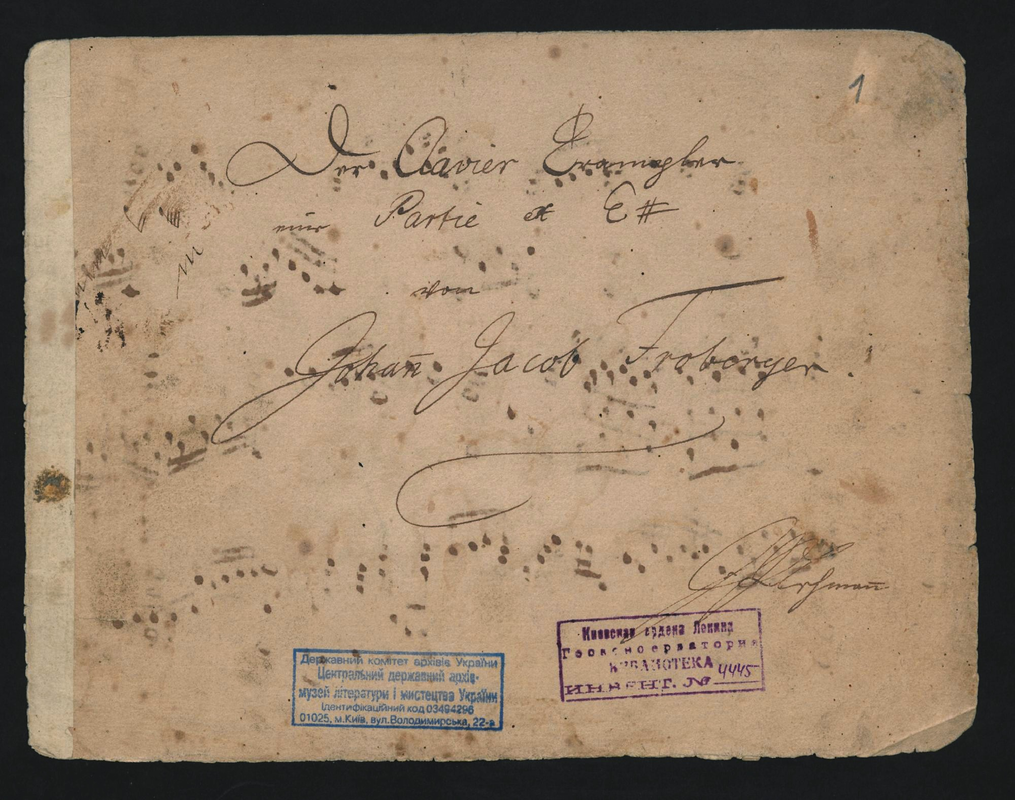 1
Der Clavier Exampler
eine Partie ex E#
von
Johan̄ Jacob Froberger.
Державний комітет архівів України
Центральний державний архів-
музей літератури і мистецтва України
ідентифікаційний код 03494296
01025, м.Київ, вул.Володимирська, 22-а
Киевская ордена Ленина
Госконсерватория
БИБЛИОТЕКА
ИНВЕНТ. № 4445